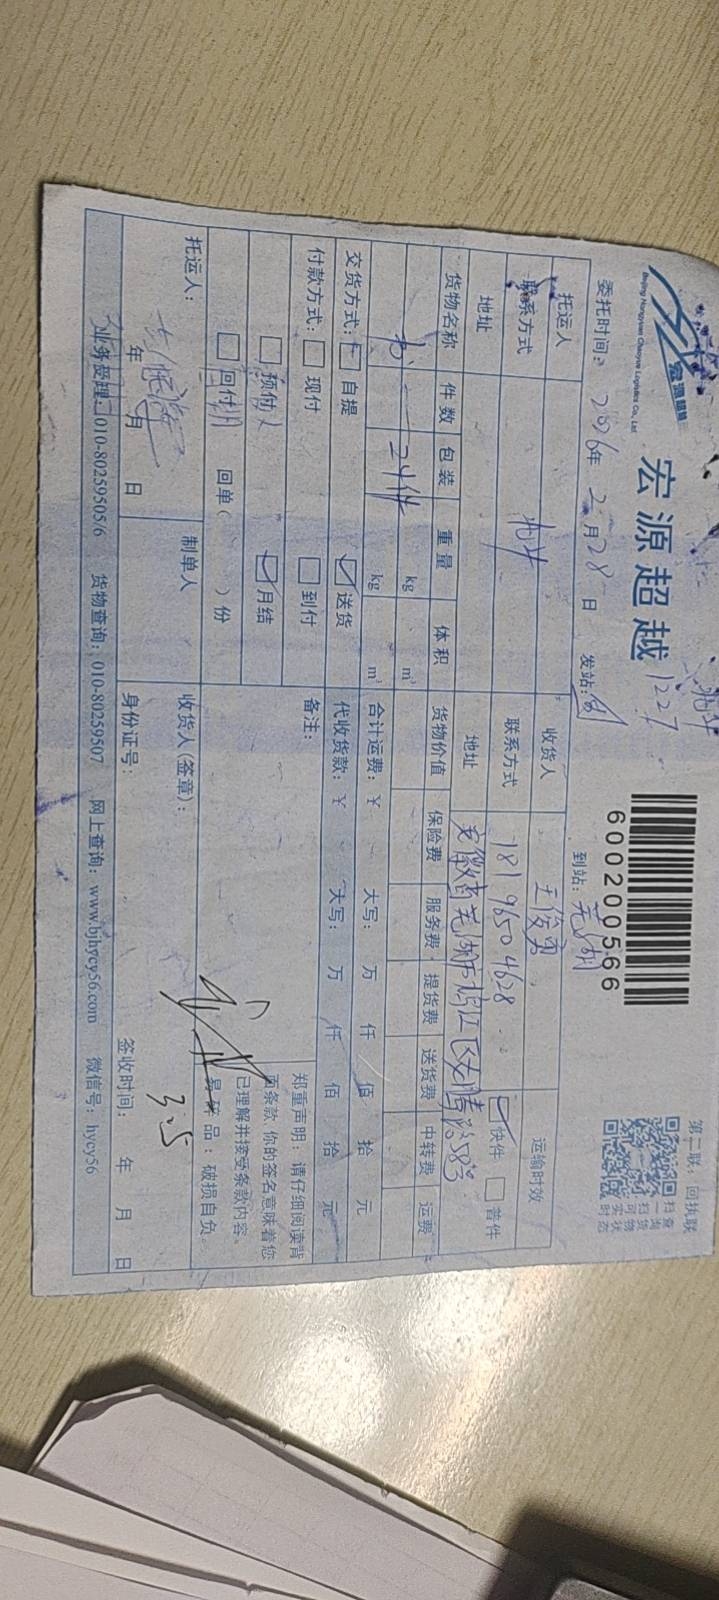 宏源超越
Beijing Hongyuan Chaoyue Logistics Co., Ltd
宏源超越
1227
600200566
第二联：回执联
扫一扫可实时
查询货物状态
委托时间：2026年2月28日 发站：
到站：芜湖
托运人
收货人 王俊勇
运输时效
联系方式
联系方式 181 9650 4628
快件 普件
地址
地址 安徽省芜湖市鸠江区
货物名称 件数 包装 重量 体积 货物价值 保险费 服务费 提货费 送货费 中转费 运费
书 24件 kg m³
kg m³
交货方式： 自提 送货
合计运费：￥ 大写： 万 仟 佰 拾 元
付款方式： 现付 到付
代收货款：￥ 大写： 万 仟 佰 拾 元
预付 月结
备注：
回付 回单（ ）份
郑重声明：请仔细阅读背
面条款，你的签名意味着您
已理解并接受条款内容。
易碎品：破损自负。
托运人： 制单人 收货人(签章)：
3.5
年 月 日 身份证号： 签收时间： 年 月 日
业务受理：010-80259505/6 货物查询：010-80259507 网上查询：www.bjhycy56.com 微信号：hycy56